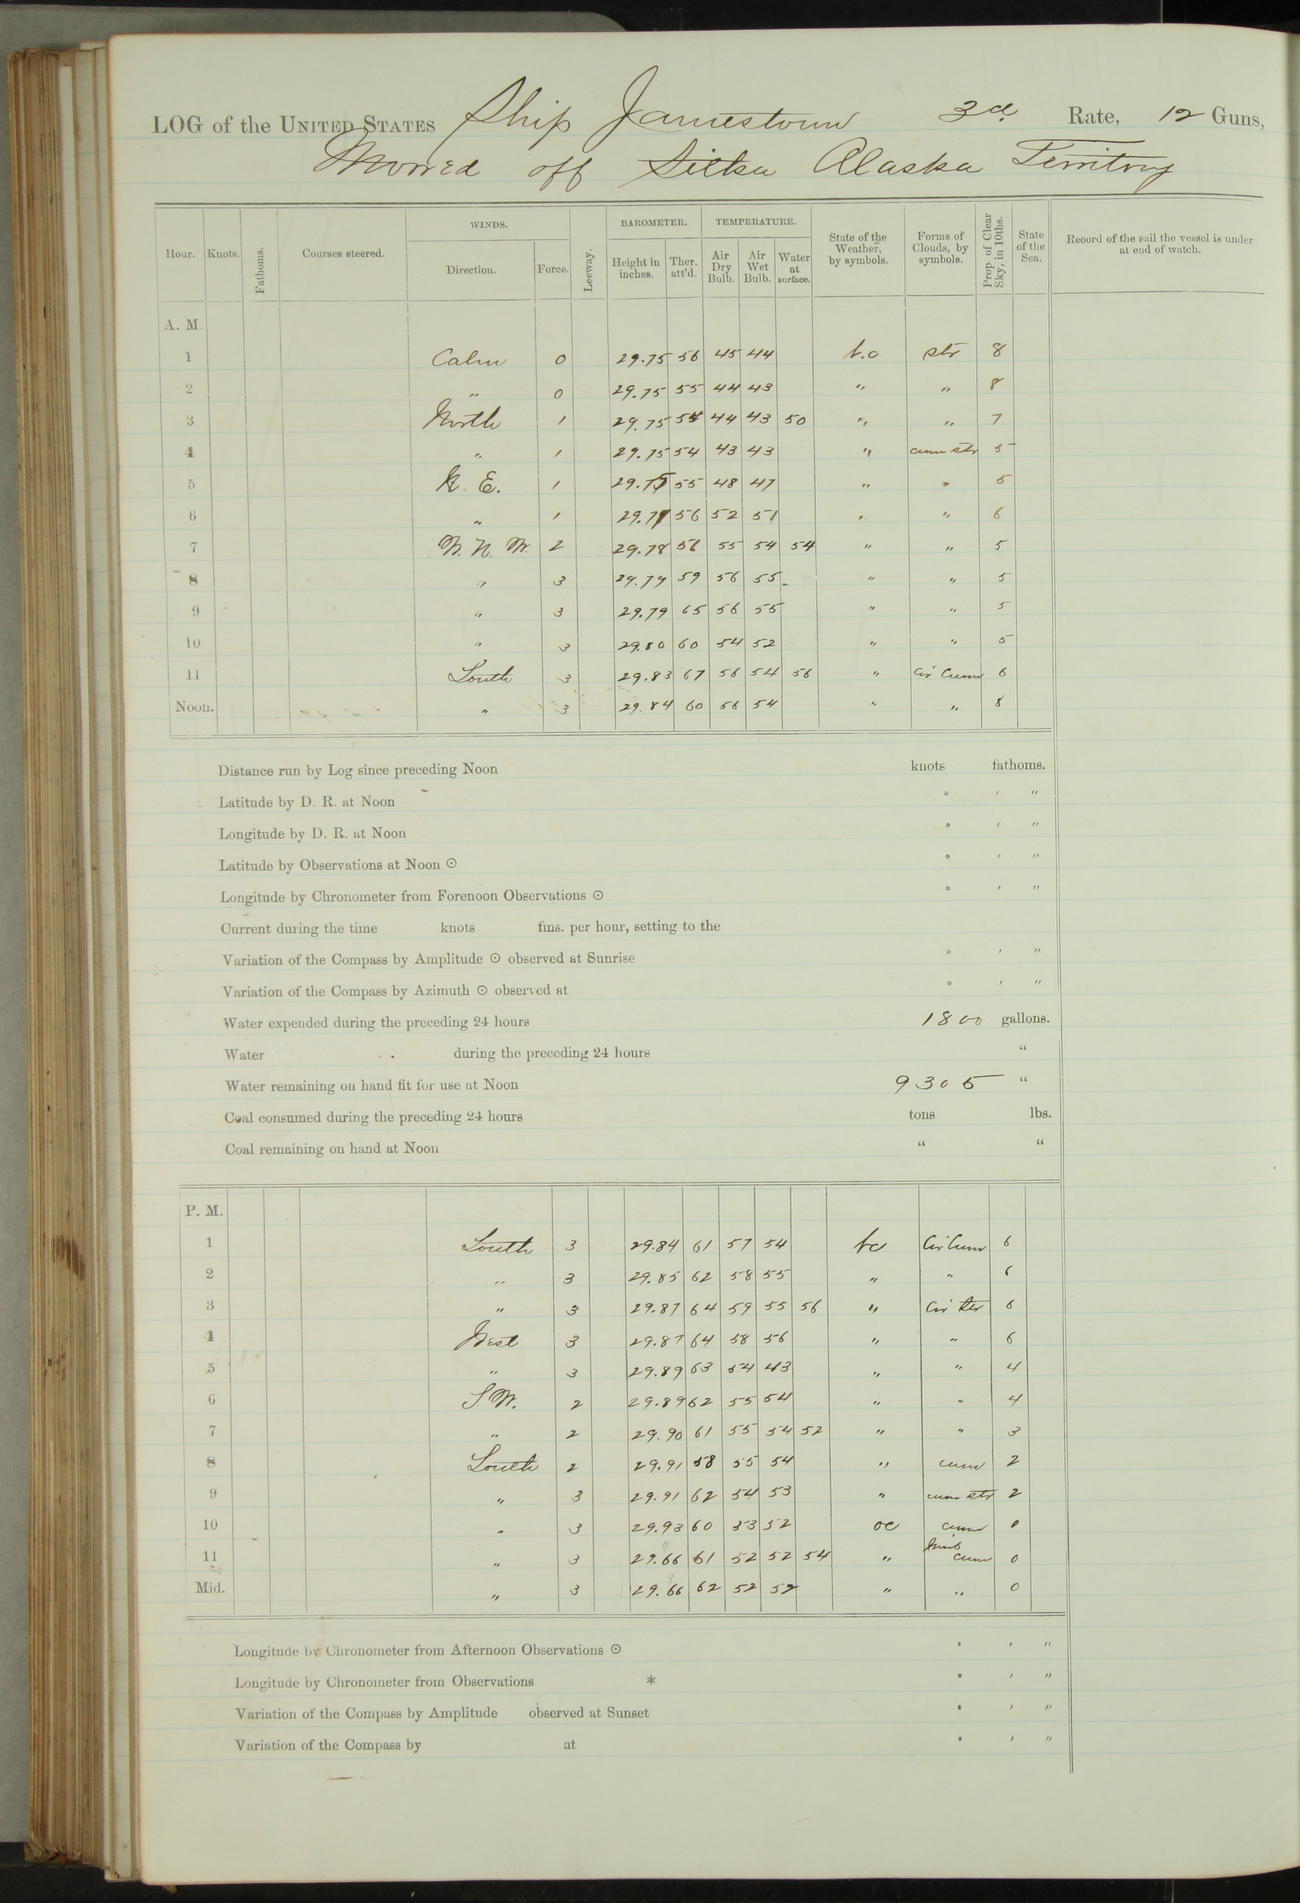 LOG of the UNITED STATES Ship Jamestown 3d Rate, 12 Guns,
Moored off Sitka Alaska Territory
Hour. Knots. Fathoms. Courses steered. WINDS. Direction. Force. Leeway. BAROMETER. Height in inches. Ther. att'd. TEMPERATURE. Air Dry Bulb. Air Wet Bulb. Water at surface. State of the Weather, by symbols. Forms of Clouds, by symbols. Prop. of Clear Sky, in 10ths. State of the Sea. Record of the sail the vessel is under at end of watch.
A. M.
1 Calm 0 29.75 56 45 44 b.c str 8
2 " 0 29.75 55 44 43 " " 8
3 North 1 29.75 54 44 43 50 " " 7
4 " 1 29.75 54 43 43 " cum str 5
5 N. E. 1 29.75 55 48 47 " " 5
6 " 1 29.78 56 52 51 " " 6
7 W. N. W. 2 29.78 56 55 54 54 " " 5
8 " 3 29.79 59 56 55 " " 5
9 " 3 29.79 65 56 55 " " 5
10 " 3 29.80 60 54 52 " " 5
11 South 3 29.83 67 56 54 56 " Cir Cum 6
Noon. " 3 29.84 60 56 54 " " 8
Distance run by Log since preceding Noon knots fathoms.
Latitude by D. R. at Noon ° ' "
Longitude by D. R. at Noon ° ' "
Latitude by Observations at Noon ⊙ ° ' "
Longitude by Chronometer from Forenoon Observations ⊙ ° ' "
Current during the time knots fms. per hour, setting to the
Variation of the Compass by Amplitude ⊙ observed at Sunrise ° ' "
Variation of the Compass by Azimuth ⊙ observed at ° ' "
Water expended during the preceding 24 hours 1800 gallons.
Water during the preceding 24 hours "
Water remaining on hand fit for use at Noon 9305 "
Coal consumed during the preceding 24 hours tons lbs.
Coal remaining on hand at Noon " "
P. M.
1 South 3 29.84 61 57 54 bc Cir Cum 6
2 " 3 29.85 62 58 55 " " 6
3 " 3 29.87 64 59 55 56 " Cir Str 6
4 West 3 29.87 64 58 56 " " 6
5 " 3 29.89 63 54 43 " " 4
6 S W. 2 29.89 62 55 54 " " 4
7 " 2 29.90 61 55 54 52 " " 3
8 South 2 29.91 58 55 54 " cum 2
9 " 3 29.91 62 54 53 " cum str 2
10 " 3 29.93 60 53 52 oc cum 0
11 " 3 29.66 61 52 52 54 " Nimb cum 0
Mid. " 3 29.66 62 52 52 " " 0
Longitude by Chronometer from Afternoon Observations ⊙ ° ' "
Longitude by Chronometer from Observations * ° ' "
Variation of the Compass by Amplitude observed at Sunset ° ' "
Variation of the Compass by at ° ' "